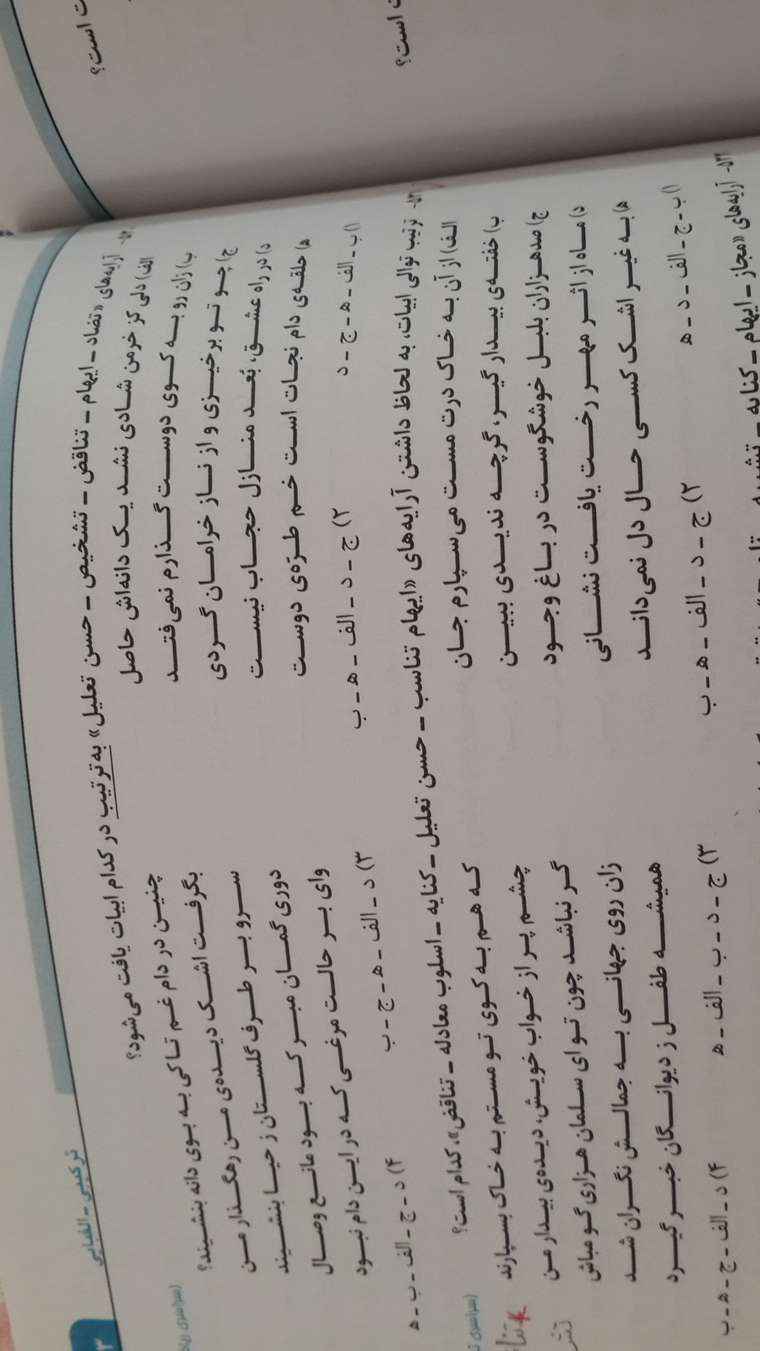 ت است؟
ت است؟
۳
ترکیبی - الفبایی
۵۳۰- آرایه‌های «تضاد - ایهام - تناقض - تشخیص - حسن تعلیل» به ترتیب در کدام ابیات یافت می‌شود؟
(سراسری
الف) دلی کز خرمن شادی نشد یک دانه‌اش حاصل چنین در دام غم تا کی به بوی دانه بنشیند؟
ب) زان رو به کوی دوست گذارم نمی‌فتد بگرفت اشک دیده‌ی من رهگذار من
ج) چو تو برخیزی و از ناز خرامان گردی سرو بر طرف گلستان ز حیا بنشیند
د) در راه عشق، بُعد منازل حجاب نیست دوری گمان مبر که بود مانع وصال
ه) حلقه‌ی دام نجات است خم طرّه‌ی دوست وای بر حالت مرغی که در این دام نبود
۱) ب - الف - ه - ج - د ۲) ج - د - الف - ه - ب ۳) د - الف - ه - ج - ب ۴) د - ج - الف - ب - ه
۵۳۱- ترتیب توالی ابیات، به لحاظ داشتن آرایه‌های «ایهام تناسب - حسن تعلیل - کنایه - اسلوب معادله - تناقض»، کدام است؟
(سراسری
الف) از آن به خاک درت مست می‌سپارم جان که هم به کوی تو مستم به خاک بسپارند
ب) خفته‌ی بیدار گیر، گرچه ندیدی ببین چشم پر از خواب خویش، دیده‌ی بیدار من
ج) صدهزاران بلبل خوشگوست در باغ وجود گر نباشد چون تو ای سلمان هزاری گو مباش
د) ماه از اثر مهر رخت یافت نشانی زان روی جهانی به جمالش نگران شد
ه) به غیر اشک کسی حال دل نمی‌داند همیشه طفل ز دیوانگان خبر گیرد
۱) ب - ج - الف - د - ه ۲) ج - د - الف - ه - ب ۳) ج - د - ب - الف - ه ۴) د - الف - ج - ه - ب
۵۳۲- آرایه‌های «مجاز - ایهام - کنایه - تشبیه